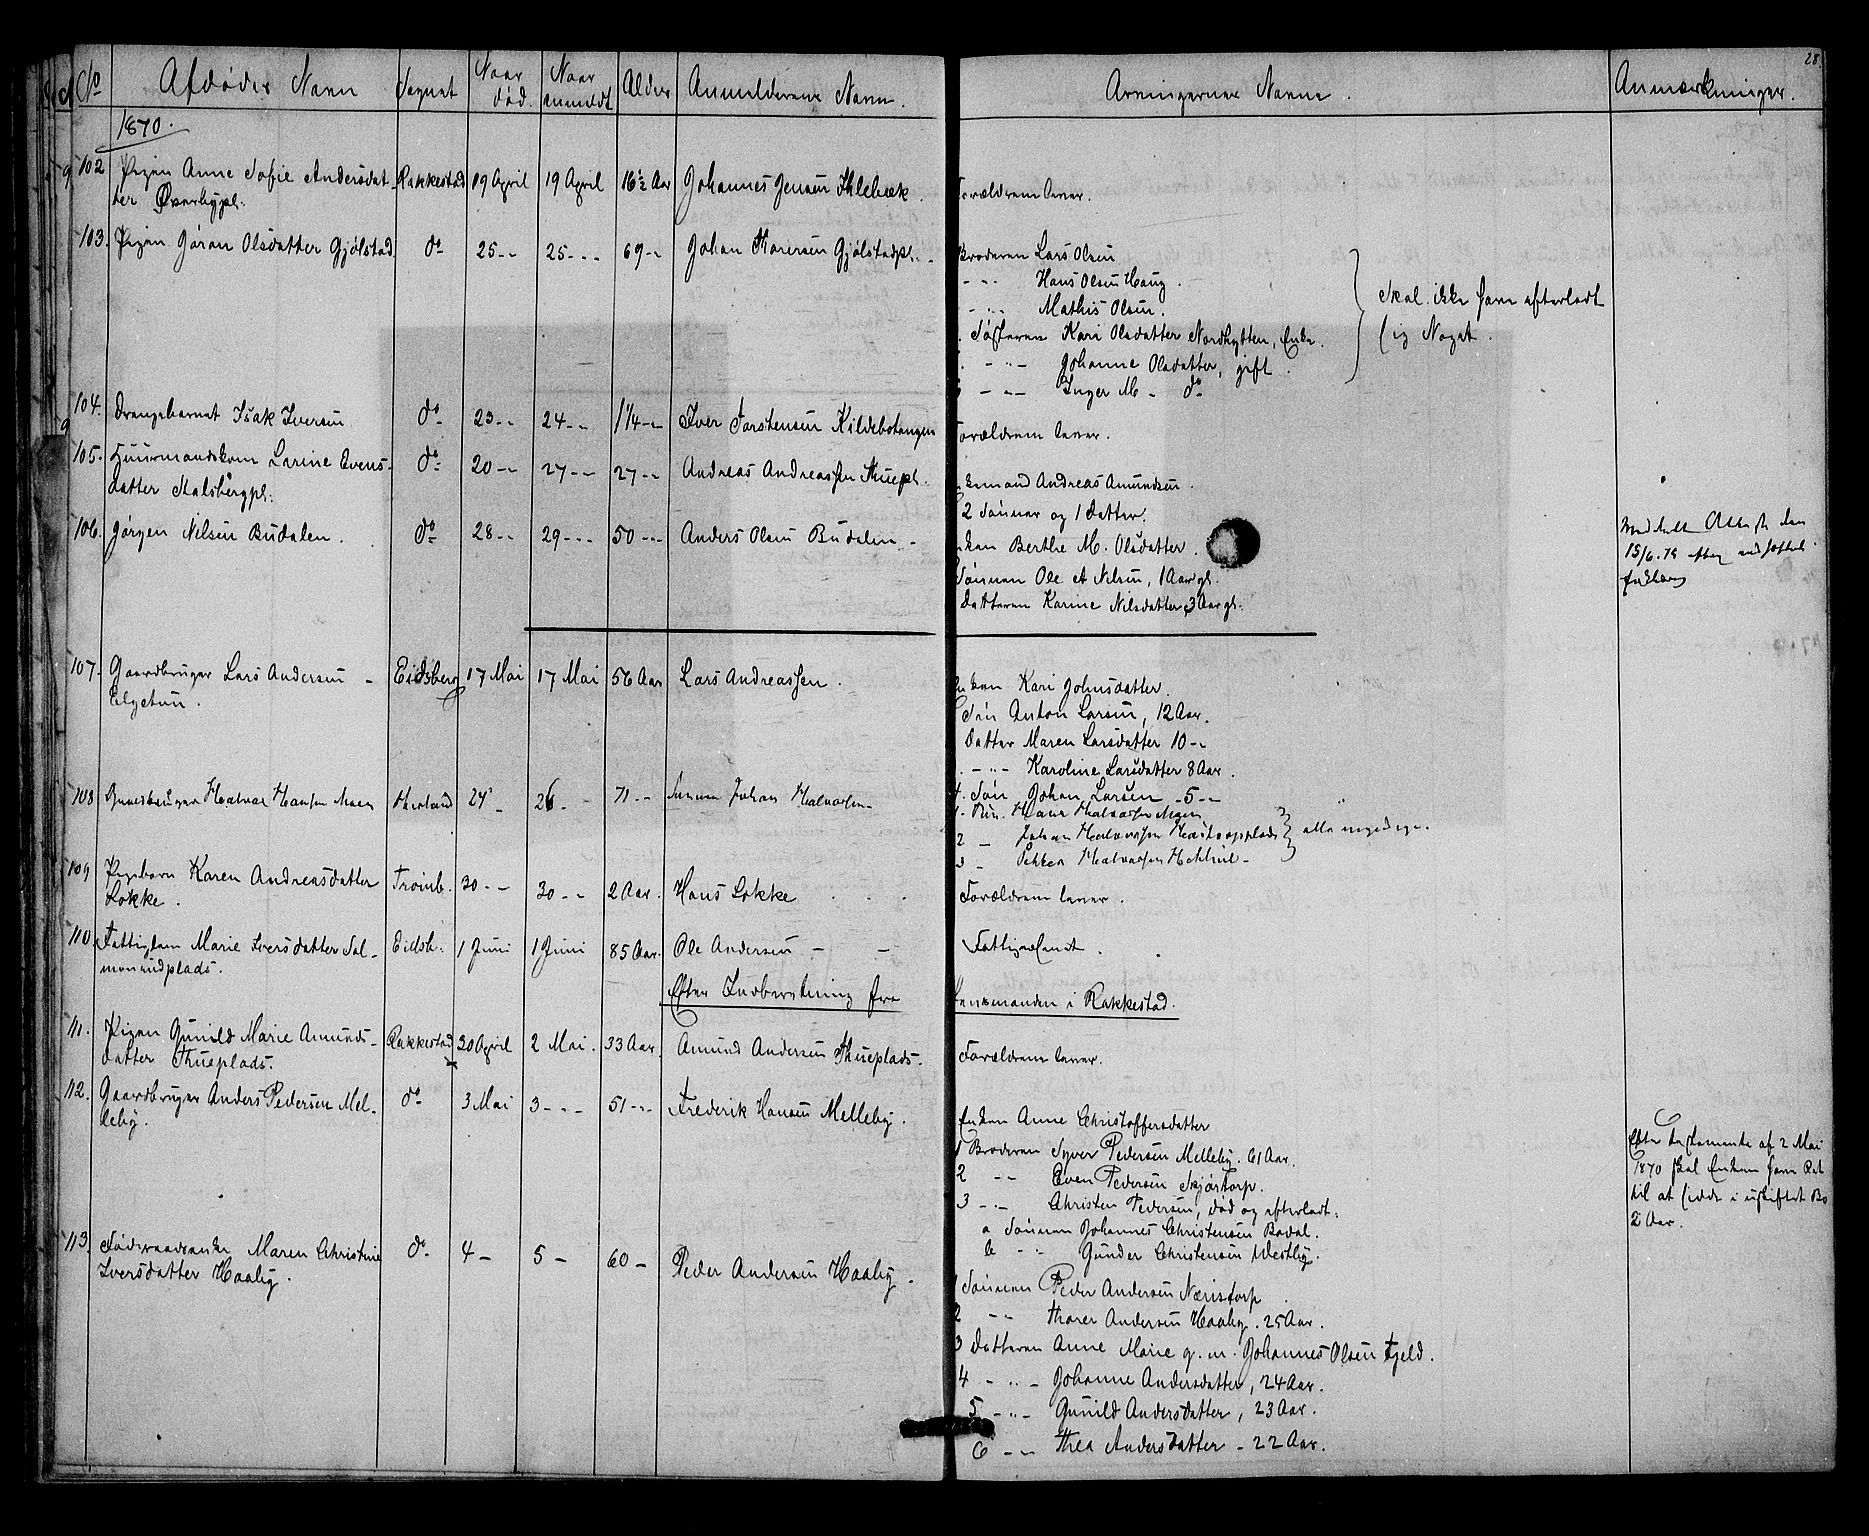 28.
No Afdødes Navn Sognet Naar død Naar anmeldt Alder Anmelderens Navn. Arvingernes Navne. Anmærkninger.
1870.
102 Pigen Anne Sofie Andersdat- Rakkestad 19 April 19 April 16½ Aar Johannes Jensen Ihlebæk. Forældrene lever.
ter Øverbypl.
103. Pigen Gøran Olsdatter Gjølstad do 25 -- 25 --- 69 -- Johan Thoresen Gjølstadpl. Broderen Lars Olsen
- - - Hans Olsen Haug.
- - - Mathis Olsen.
Søsteren Kari Olsdatter Nordbytten, Enke.
- - - Johanne Olsdatter, gift
- - - Inger M - do
Skal ikke have efterladt
sig Noget.
104. Drengebarnet Isak Iversen do 23 -- 24 -- 1¼ -- Iver Torstensen Kildebotangen Forældrene lever.
105. Huusmandskone Larine Evens- do 20 -- 27 -- 27 -- Andreas Andreassen Thuepl. Enkemand Andreas Amundsen.
datter Stalsbergpl. 2 Sønner og 1 Datter.
106. Jørgen Nilsen Budalen. do 28 -- 29 --- 50 --- Anders Olsen Budalen - Enken Berthe M. Olsdatter.
Sønnen Ole A Nilsen, 1 Aar gl.
Datteren Karine Nilsdatter, 3 Aar gl.
Meddelt Attest den
15/6.75
107. Gaardbruger Lars Andersen - Eidsberg 17 Mai 17 Mai 56 Aar Lars Andreassen. Enken Kari Johnsdatter.
Elgetun. Søn Anton Larsen, 12 Aar.
Datter Maren Larsdatter 10 --
- - - Karoline Larsdatter 8 Aar.
4. Søn Johan Larsen - 5 --
108 Gaardbruger Halvor Hansen Moen Hærland 24 - 26 - 71 -- Sønnen Johan Halvorsen 1. Søn. Hans Halvorsen Moen
2 - Johan Halvorsen
3 - Halvorsen
alle myndige.
109 Pigebarn Karen Andreasdatter Trømb. 30 -- 30 -- 2 Aar. Hans Løkke Forældrene lever.
Løkke.
110 Fattiglem Marie Iversdatter Sal- Eidsb. 1 Juni 1 Juni 85 Aar. Ole Andersen - - Fattiglemt.
monrudplads.
Efter Indberetning fra Lensmanden i Rakkestad.
111. Pigen Gunild Marie Amunds- Rakkestad 20 April 2 Mai. 33 Aar. Amund Andersen Thueplads. Forældrene lever.
datter Thueplads.
112. Gaardbruger Anders Pedersen Mel- do 3 Mai 3 --- 51 --- Frederik Hansen Melleby. Enken Anne Christoffersdatter
leby. 1 Broderen Syver Pedersen Melleby. 61 Aar.
2 -- Even Pedersen Skjøstorp.
3 -- Christen Pedersen, død og efterladt:
a Sønnen Johannes Christensen Bodal.
b -- Gunder Christensen Westby.
Efter Testamente af 2 Mai
1870 skal Enken have Ret
til at sidde i uskiftet Bo
2 Aar.
113. Føderaadsenke Maren Christine do 4 - 5 - 60 - Peder Andersen Haaby. 1 Sønnen Peder Andersen Næristorp
Iversdatter Haaby. 2 -- Thorer Andersen Haaby. 25 Aar.
3 Datteren Anne Marie g. m. Johannes Olsen Fjeld.
4 - - - Johanne Andersdatter, 24 Aar.
5 - - - Gunild Andersdatter, 23 Aar.
6 - - Thea Andersdatter - 22 Aar.